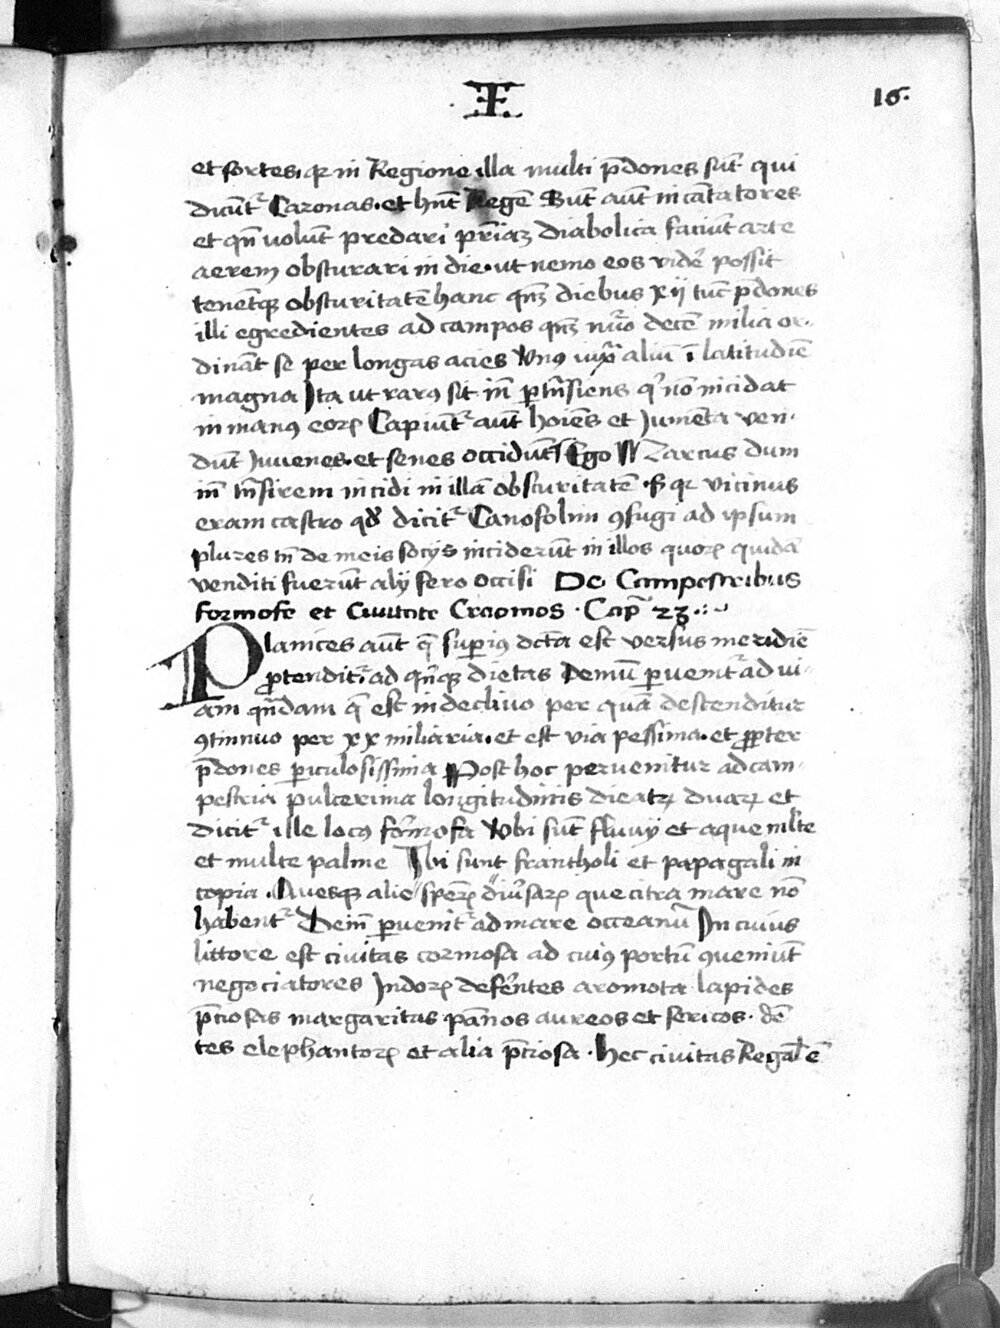 ·I·
16.
et fortes, qr in Regione illa multi p̄dones sūt qui
dicūt̉ Cazonas. et hn̄t Regē Sūt aūt incātatores
et qn̄ volūt predari prīaz diabolica faciūt arte
aerem obscurari in die. ut nemo eos vidē possit
tenētqz obscuritatē hanc qn̄qz diebus xij tūc p̄dones
illi egredientes ad campos qn̄qz nūo decē milia or-
dināt se per longas acies Vnꝰ iuxᵃ aliū ī latitudīe
magna Ita ut rarꝰ sit in̄ ꝑtn̄siens qͥ nō incidat
in manꝰ eoꝝ Capiūt̉ aūt hoīes et Jumēta ven-
dūt Juvenes. et senes occidūt Ego M Zarcus dum
in̄ trn̄sirem incidi in illā obscuritatē. ß qr vicinus
eram castro qd̓ dicit̉ Canosolim ꝯfugi ad ipsum
plures tn̄ de meis socijs inciderūt in illos quoꝝ quidā
venditi fuerūt alij fero occisi De Campestribus
formose et Ciuitate Craomos. Cap̄ 23.
Planices aūt q̄ suꝑiꝰ dctā est versus meridiē
ꝓtendit̉ ad qn̄qz dietas Demū ꝑvenit̉ ad vi-
am qn̄dam q̄ est in declivo per quā descenditur
ꝯtinuo per xx miliaria. et est via pessima. et ꝓpter
p̄dones ꝑiculosissima Post hoc pervenitur ad cam-
pestria pulcerima longitudinis dietaꝝ duaꝝ et
dicit̉ ille locꝰ formosa Vbi sūt fluvij et aque mlt̄e
et multe palme Ibi sunt francholi et papagali in
copia. Avesqz alie speꝝ diu̓saꝝ que citra mare nō
habent̉ Dein̄ ꝑvenit̉ ad mare occeanū In cuius
littore est civitas cormosa ad cuiꝰ portū ꝯveniūt
negociatores Indoꝝ defer̄ntes aromata lapides
p̄ciosas margaritas pānos aureos et sericos. dē-
tes elephantoꝝ et alia p̄ciosa. hec civitas Regal̄ ē